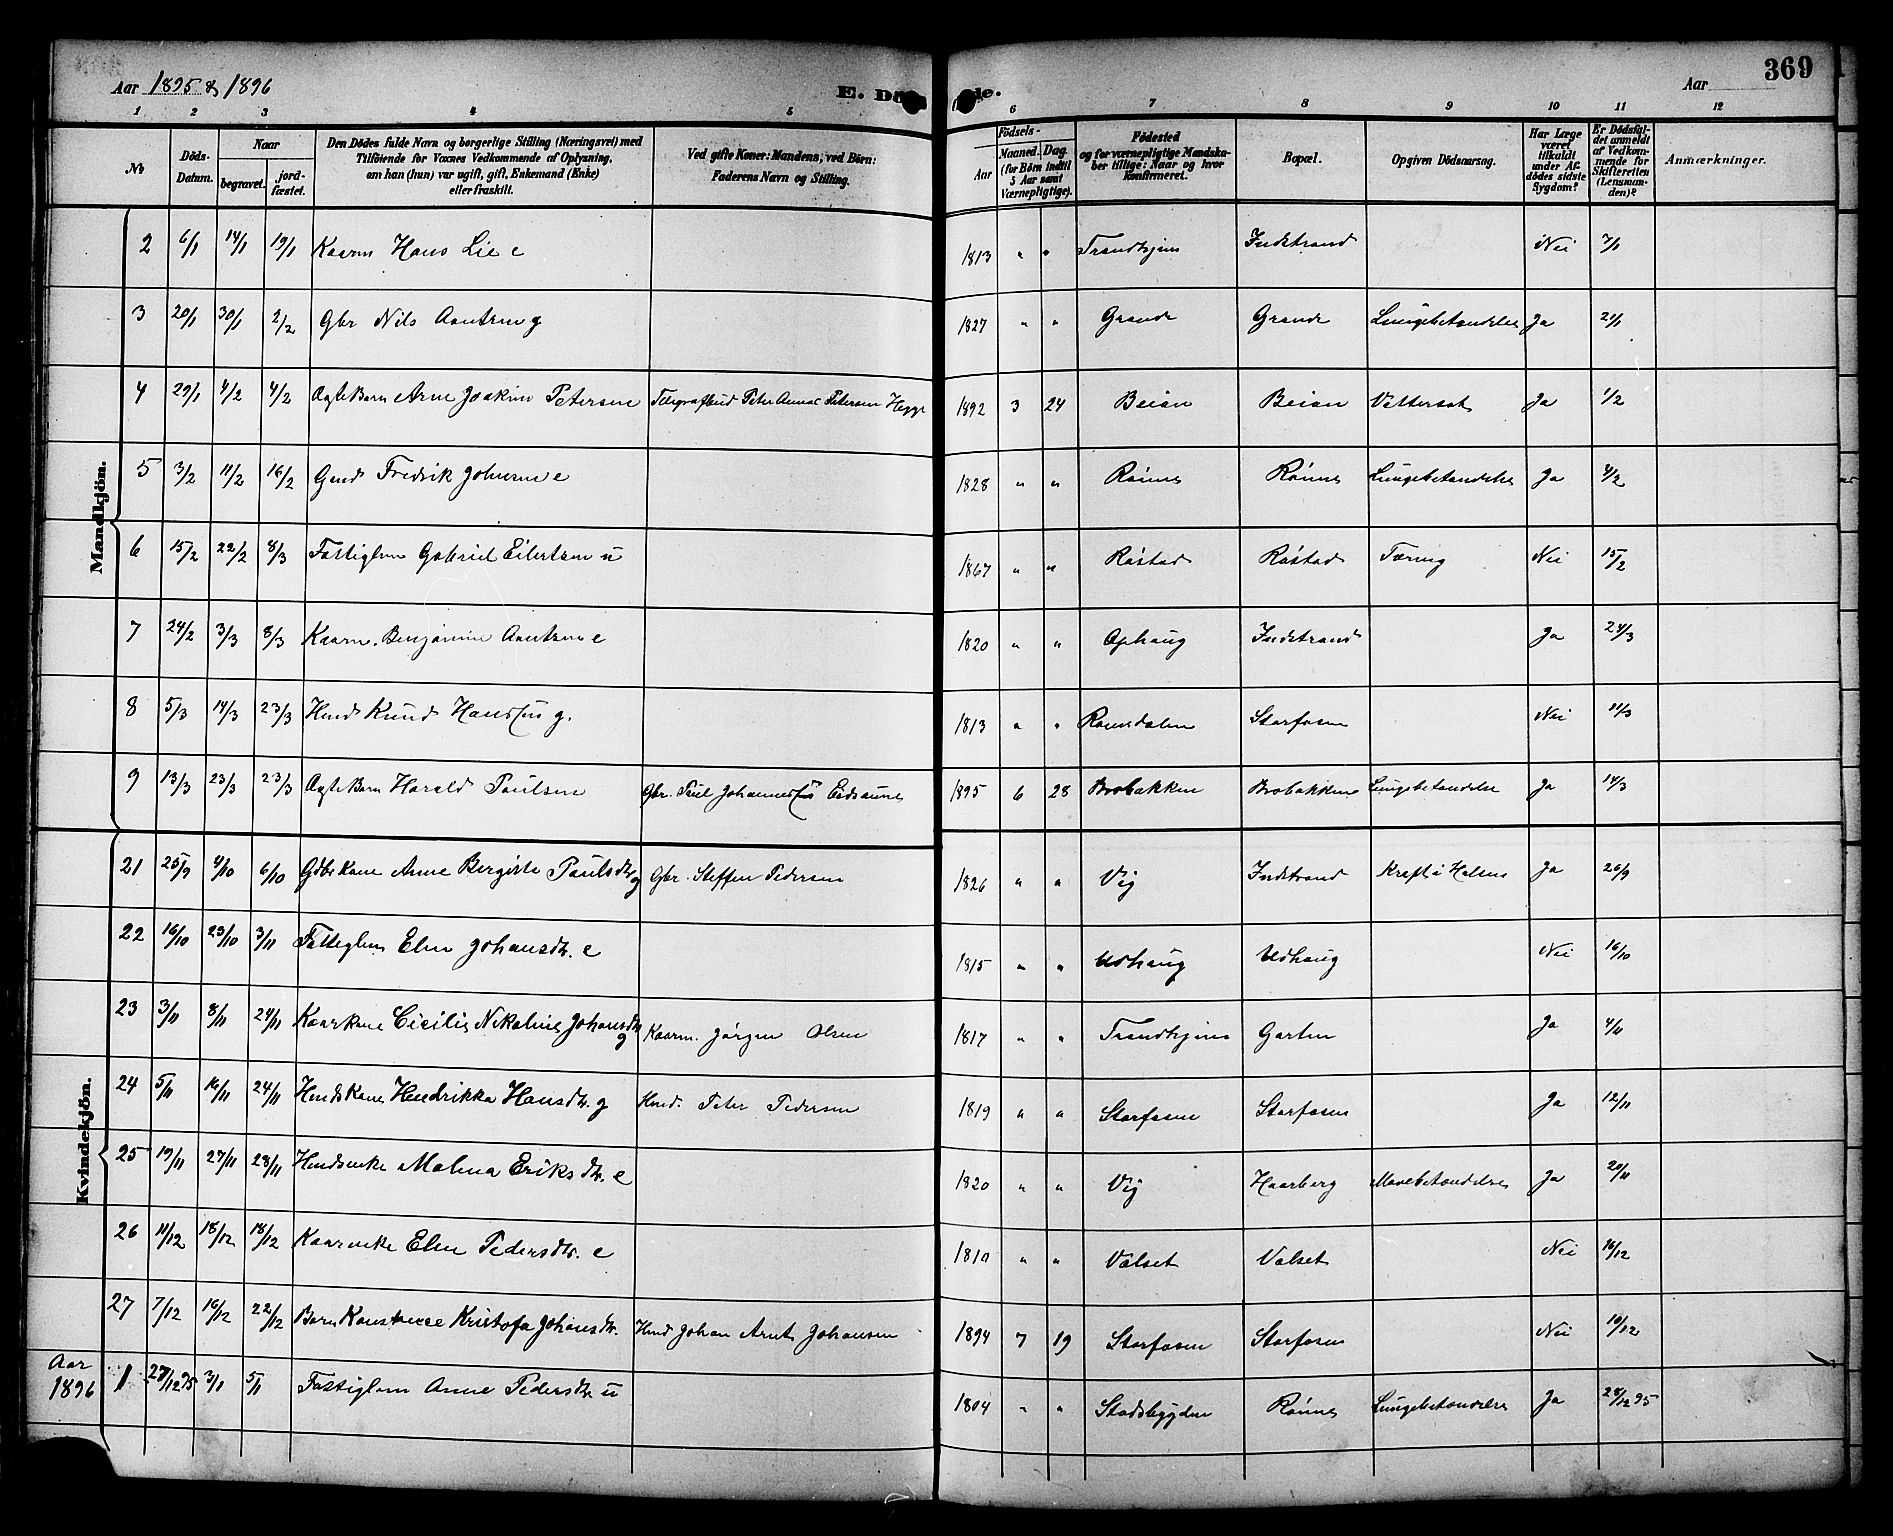 Aar 1895 & 1896
E. Dö de.
Aar
369
1 2 3 4 5 6 7 8 9 10 11 12
No
Döds-Datum.
Naar
begravet.
jord-fæstet.
Den Dödes fulde Navn og borgerlige Stilling (Næringsvei) med
Tilföiende for Vaxnes Vedkommende af Oplysning,
om han (hun) var ugift, gift, Enkemand (Enke)
eller fraskilt.
Ved gifte Koner: Mandens, ved Börn:
Faderens Navn og Stilling.
Födsels-
Aar
Maaned. Dag.
(for Börn indtil
5 Aar samt
Værnepligtige).
Födested
og for værnepligtige Mandska-
ber tillige: Naar og hvor
konfirmeret.
Bopæl.
Opgiven Dödsaarsag.
Har Læge
været
tilkaldt
under Af-
dödes sidste
Sygdom?
Er Dödsfal-
det anmeldt
af Vedkom-
mende for
Skifteretten
(Lensman-
den)?
Anmærkninger.
Mandkjön.
2 6/1 14/1 19/1 Kaarm Hans Lie e 1813 " " Trondhjem Indstrand Nei 7/1
3 20/1 30/1 2/2 Gbr Nils Arntzen g 1827 " " Grande Grande Lungebetændelse Ja 21/1
4 29/1 4/2 4/2 Ægte Barn Arne Joakim Petersen Telegrafbud Peter Petersen Hegge 1892 3 24 Beian Beian Vattersot Ja 1/2
5 3/2 11/2 16/2 Gmd Fredrik Johnsen e 1828 " " Rönne Rönne Lungebetændelse Ja 4/2
6 15/2 22/2 8/3 Fattiglem Gabriel Eilertsen u 1867 " " Röstad Röstad Tæring Nei 15/2
7 24/2 3/3 8/3 Kaarm. Benjamin Arntzen e 1820 " " Ophaug Indstrand Ja 24/3
8 5/3 14/3 23/3 Hmd Knud Hanssen g. 1813 " " Romsdalen Storfosen Nei 11/3
9 13/3 23/3 23/3 Ægte Barn Harald Paulsen Gbr. Paul Johannessen Eidsaune 1895 6 28 Brobakken Brobakken Lungebetændelse Ja 14/3
Kvindekjön.
21 25/9 4/10 6/10 Gdbr Kone Anne Bergitte Paulsdtr g Gbr. Steffen Pedersen 1826 " " Vig Indstrand Kræft i Halsen Ja 26/9
22 16/10 23/10 3/11 Fattiglem Elen Johansdtr. e 1815 " " Udhaug Udhaug Nei 16/10
23 3/11 8/11 24/11 Kaarkone Cicilie Nikoline Johansdtr g Kaarm. Jörgen Olsen 1817 " " Trondhjem Garten Ja 4/11
24 5/11 16/11 24/11 Hmds Kone Hendrikka Hansdtr. g Hmd. Peter Pedersen 1819 " " Storfosen Storfosen Ja 12/11
25 19/11 27/11 28/11 Hmdsenke Malena Eriksdtr. e 1820 " " Vig Haarberg Mavebetændelse Ja 20/11
26 11/12 18/12 18/12 Kaarenke Elen Pedersdtr. e 1810 " " Valset Valset Nei 16/12
27 7/12 16/12 22/12 Barn Konstance Kristofa Johansdtr. Hmd Johan Arnt Johansen 1894 7 19 Storfosen Storfosen Nei 10/12
Aar
1896 1 27/12 95 3/1 5/1 Fattiglem Anne Pedersdtr u 1804 " " Stadsbygden Rönne Lungebetændelse Ja 28/12 95